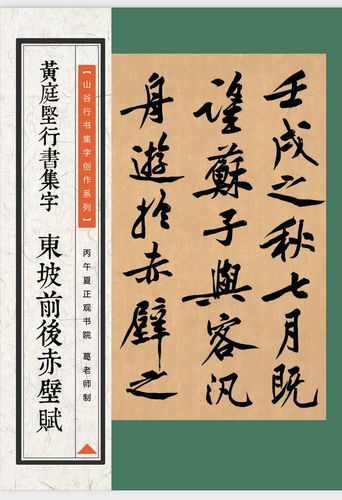 黃庭堅行書集字 東坡前後赤壁賦
【山谷行书集字创作系列】
丙午夏正观书院 葛老师制
壬戌之秋七月既
望蘇子與客汎
舟遊於赤壁之